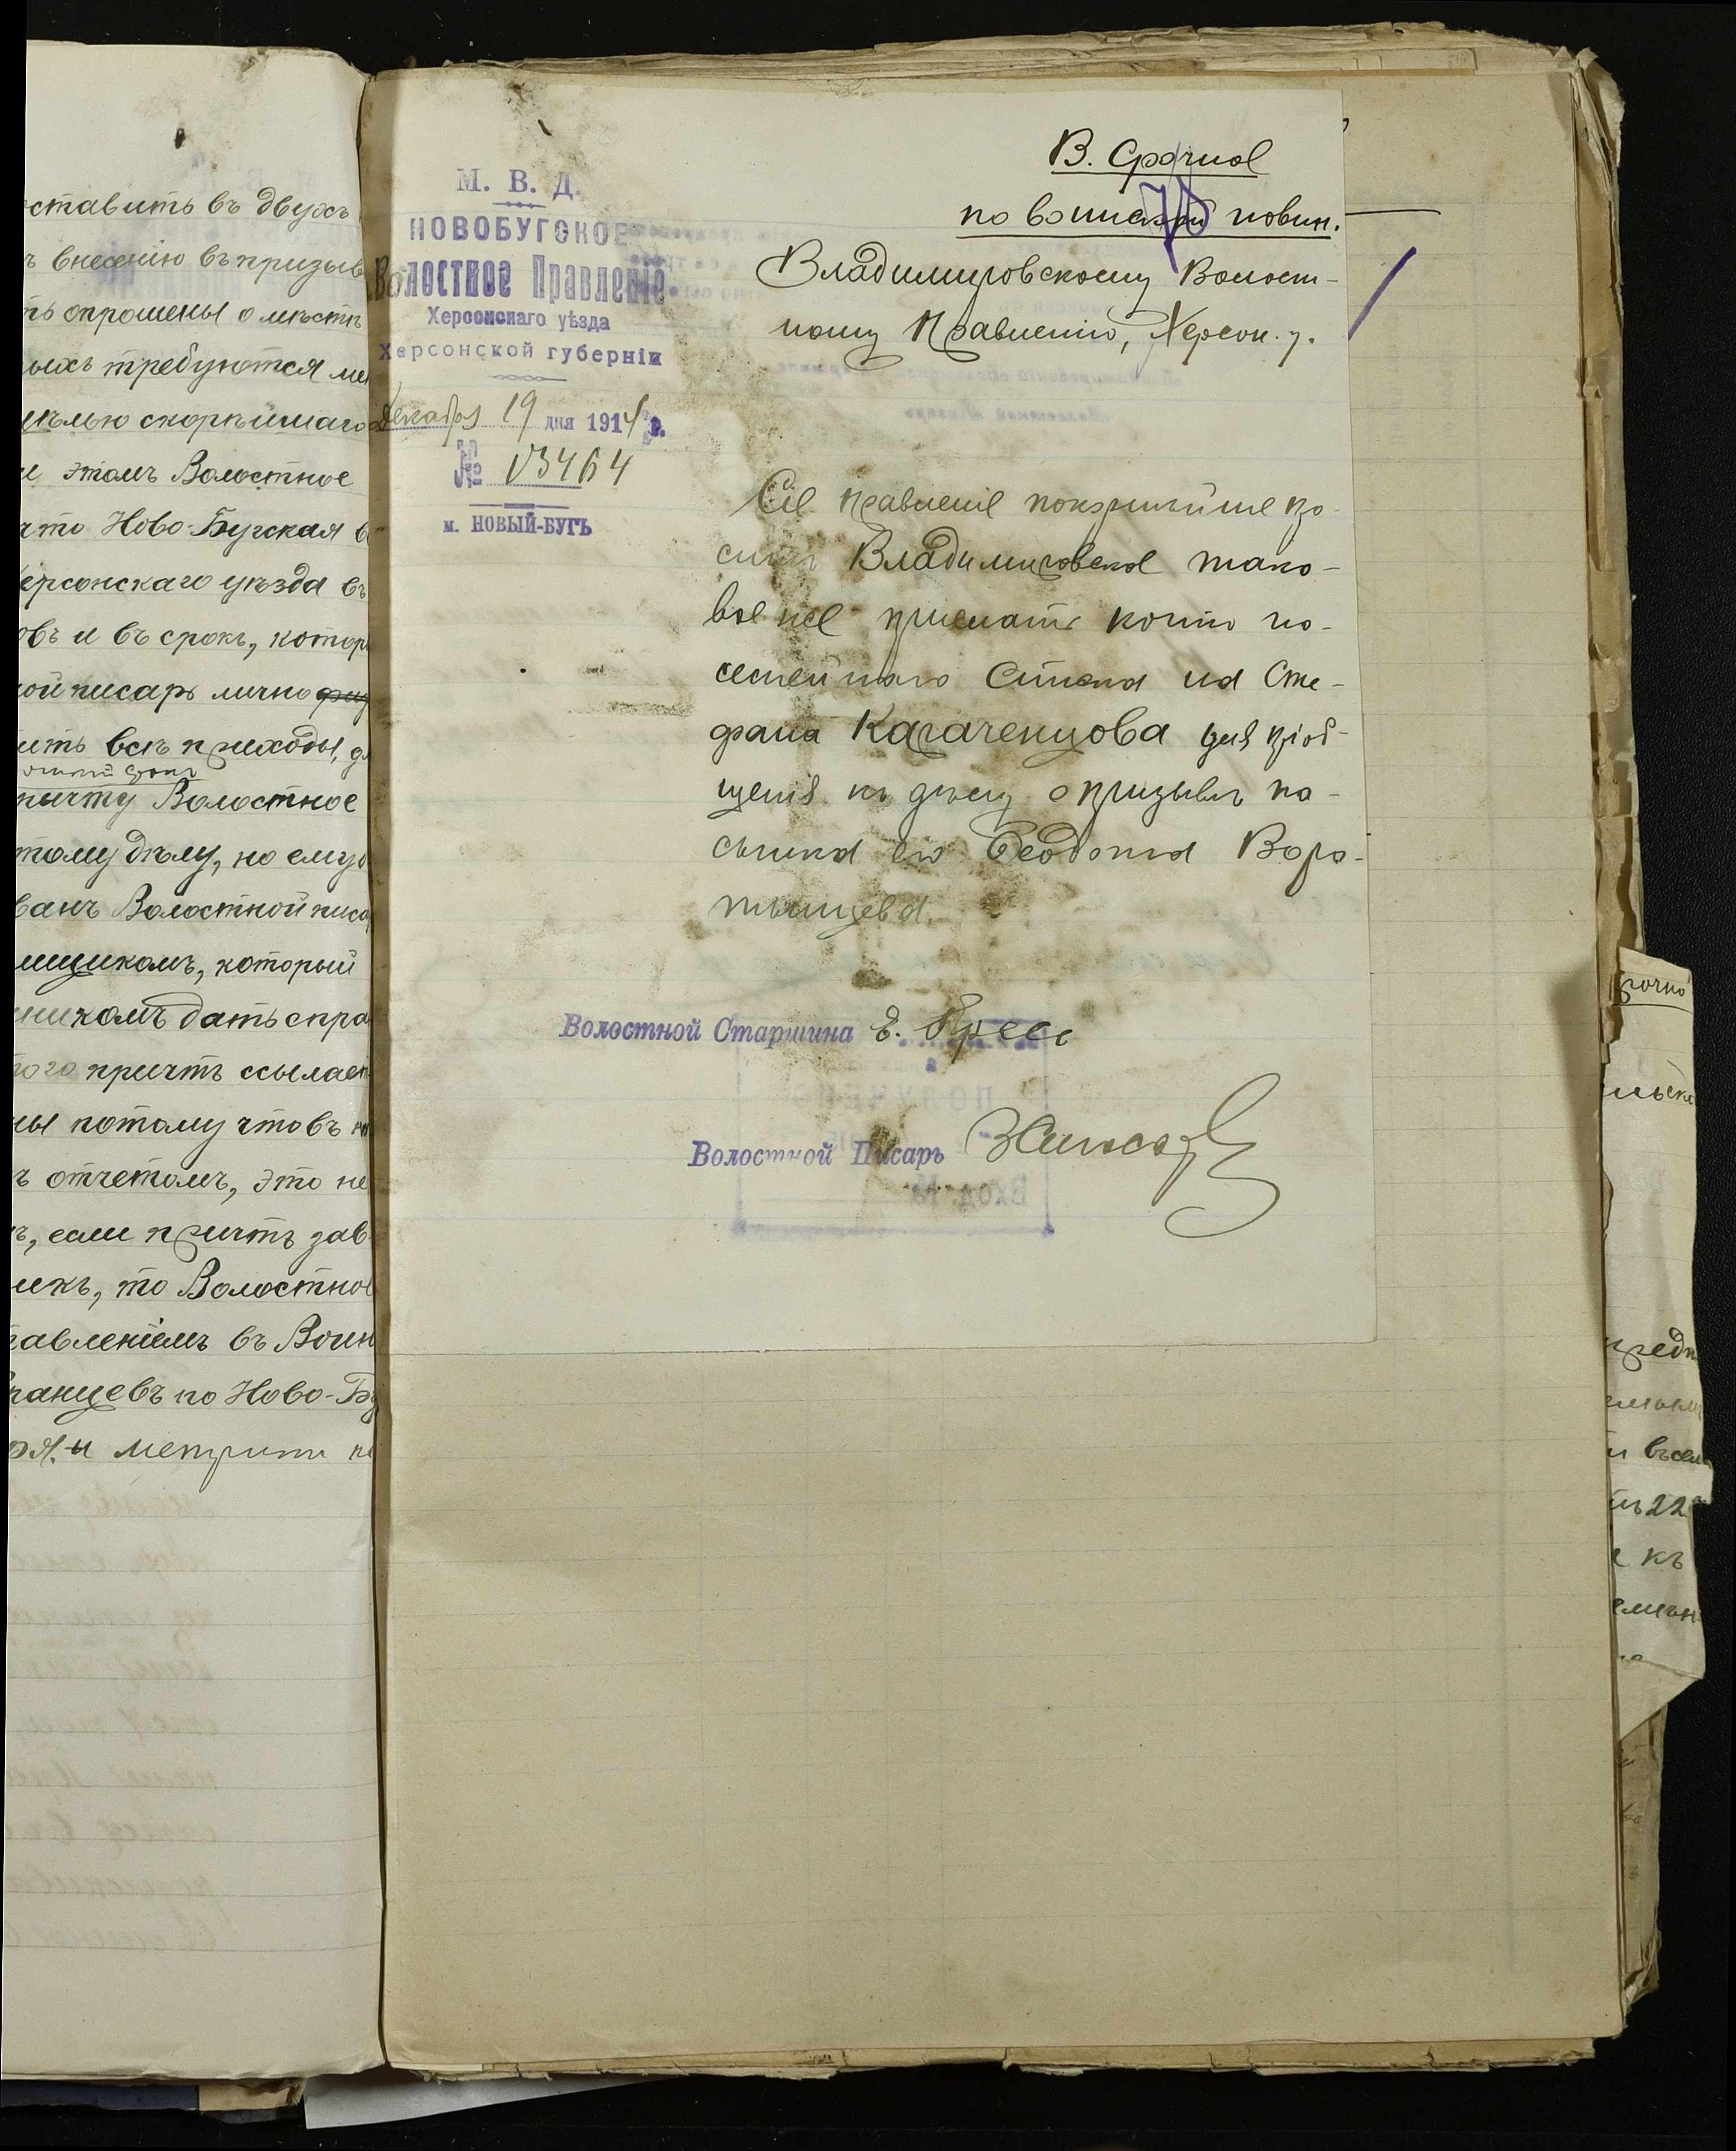 ставить въ двухъ
внесенію въ призыв
ть опрошены о мѣстѣ
ыхъ требуются ме
цѣлью скорѣйшаго
этомъ Волостное
что Ново-Бугская в
ерсонскаго уѣзда въ
овъ и въ срокъ, котор
ой писарь лично
ить всѣ приходы, д
причту Волостное
тому дѣлу, но ему
ванъ Волостной писа
щикомъ, который
никомъ дать спра
того причтъ ссылает
ны потому что въ н
ъ отчетомъ, это не
ъ, если причтъ зав
икъ, то Волостное
тавленіемъ въ Воин
ранцевъ по Ново-Бу
метрики
М. В. Д.
НОВОБУГСКОЕ
Волостное Правленіе
Херсонскаго уѣзда
Херсонской губерніи
Декабря 19 дня 1914 г.
№ 13464
м. НОВЫЙ-БУГЪ
В. Срочное
по воинской повин.
78
Владимировскому Волост-
ному Правленію, Херсон. у.
Сіе Правленіе покорнѣйше про-
ситъ Владимировское тако-
вое же прислать копію по-
семейнаго списка на Сте-
фана Карачевцова для пріоб-
щенія къ дѣлу о призывѣ па-
сынка его Феодота Воро-
тынцева.
Волостной Старшина Е.
Волостной Писарь
ПОЛУЧЕНО
Вход. №
рочно
предп
22
къ